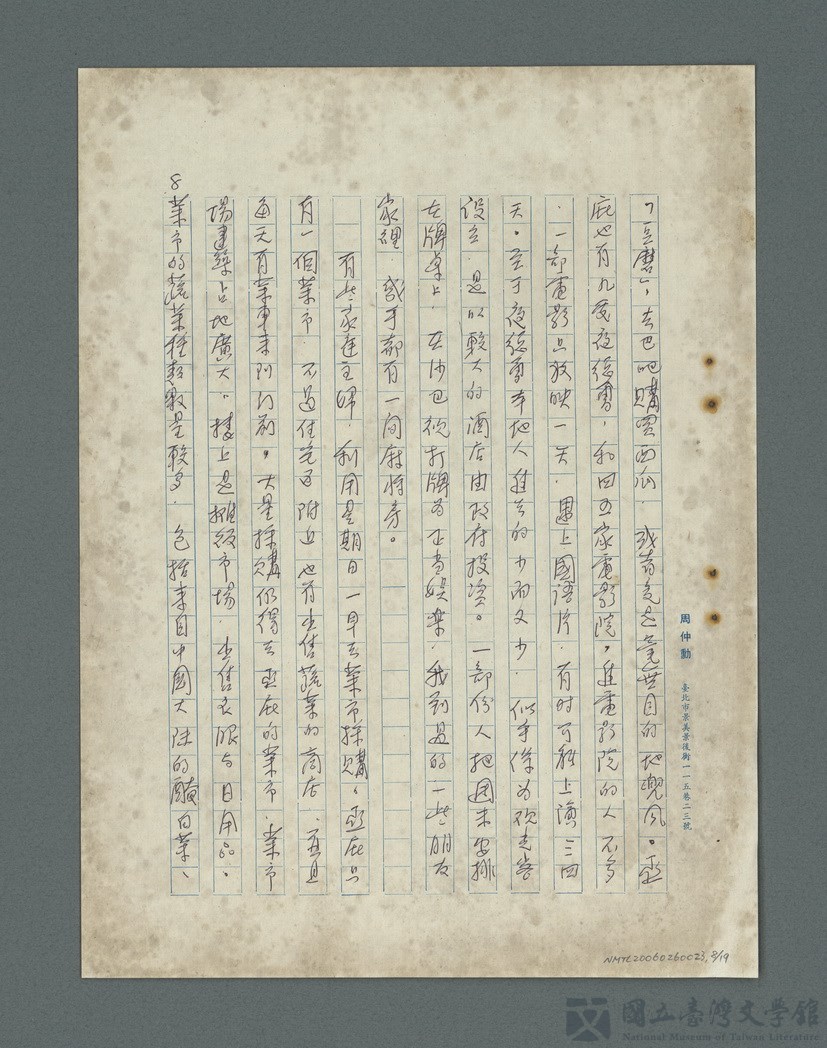 周仲勳 臺北市景美景後街一一五巷二三號
「豆磨」,去巴吧購買西瓜.或者毫無目的地兜風。亞
庇也有九處夜總會,和四五家電影院,進電影院的人不多
.一部電影只放映一天.遇上國語片.有时可能上演三四
天。至于夜總會本地人進去的少而又少.似乎係为观光客
設立.是以較大的酒店由政府投資。一部份人把週末安排
在牌桌上.在沙巴视打牌为正当娛樂.我到過的一些朋友
家裡.幾乎都有一间麻將房。
有些家庭主婦.利用星期日一早去菜市採購,亞庇只
有一個菜市.不過住宅區附近也有出售蔬菜的商店、而且
每天有菜車来到门前。大量採購仍得去亞庇的菜市.菜市
場建築占地廣大。樓上是攤販市場.出售衣服与日用品。
菜市的蔬菜種類數量較多.包括来自中國大陆的醃白菜、
8
NMTL20060260023,8/19
國立臺灣文學館
National Museum of Taiwan Literature